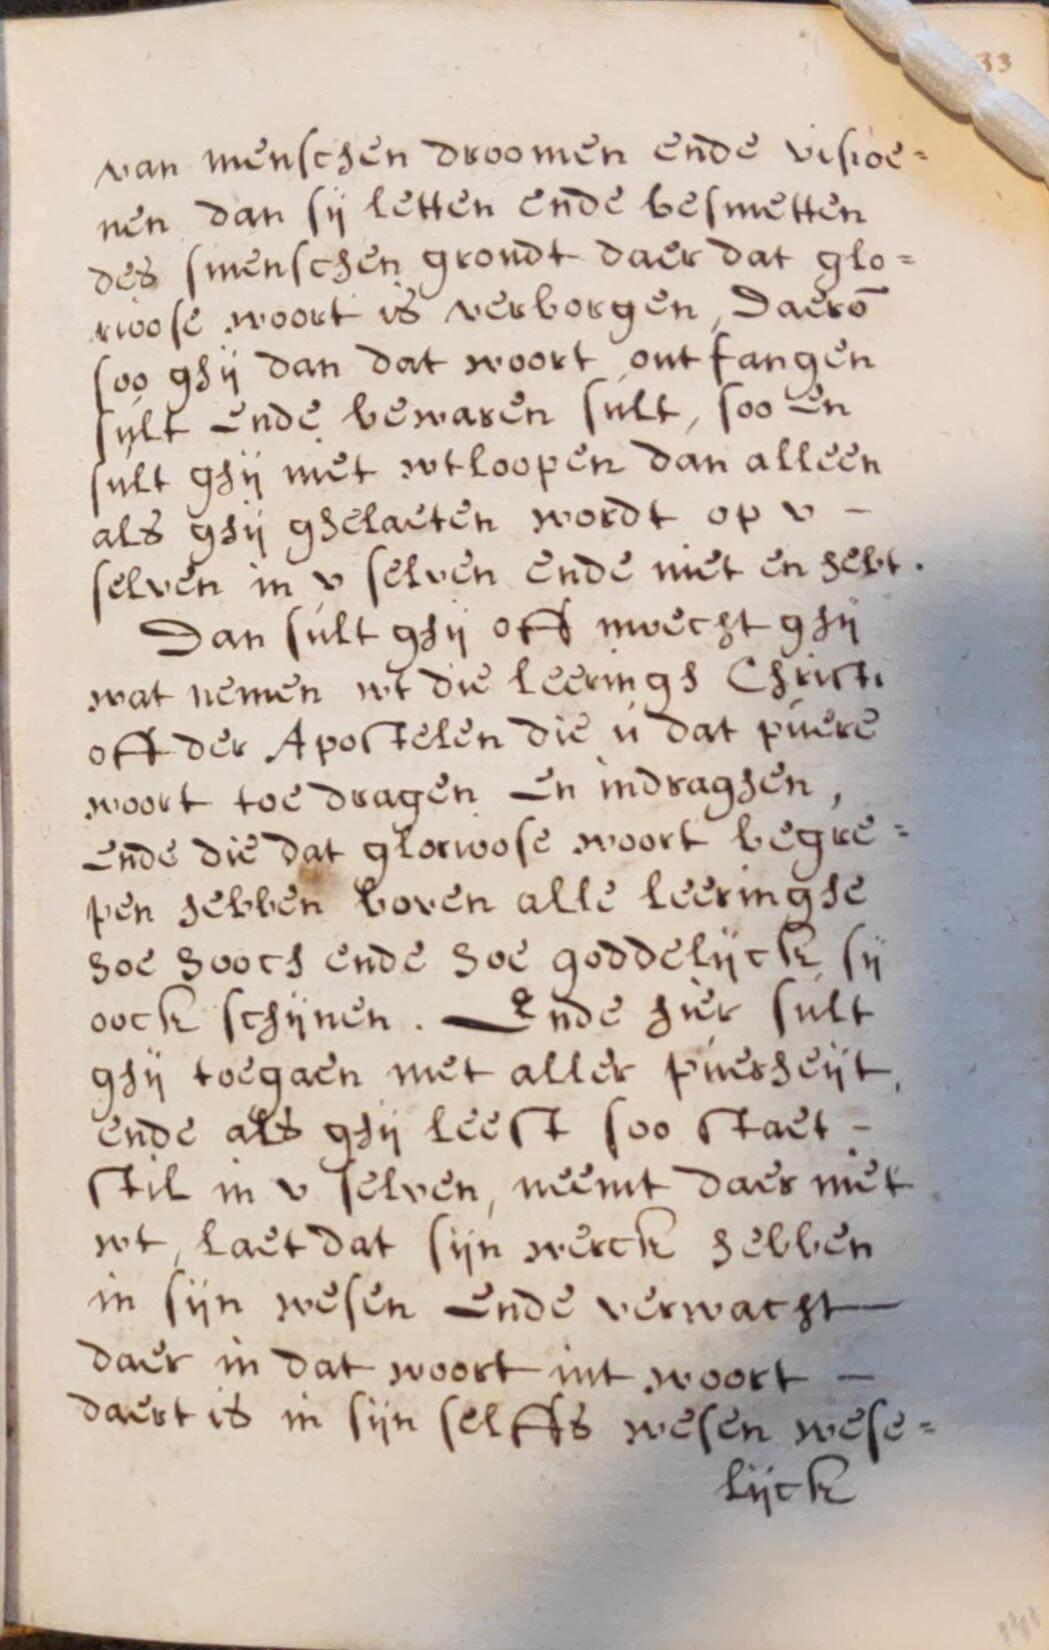 33
van menschen droomen ende visioe=
nen dan sij letten ende besmetten
des smenschen grondt daer dat glo=
rioose woort is verborgen, Daerō
soo ghij dan dat woort ontfangen
sült ende bewaren sült, soo en
sült ghij niet wtloopen dan alleen
als ghij ghelaeten wordt op v –
selven in v selven ende niet en hebt.
Dan sült ghij off moecht ghij
wat nemen wt die leerings Christi
off der Apostelen die ü dat püere
woort toe dragen en indraghen,
ende die dat gloriose woort begre=
pen hebben boven alle leeringhe
hoe hooch ende hoe goddelijck sij
oock schijnen. Ende hier sült
ghij toegaen met aller püerheijt,
ende als ghij leest soo staet –
stil in v selven, neemt daer niet
wt, laet dat sijn werck hebben
in sijn wesen ende verwacht –
daer in dat woort int woort –
daert is in sijn selffs wesen wese=
lijck